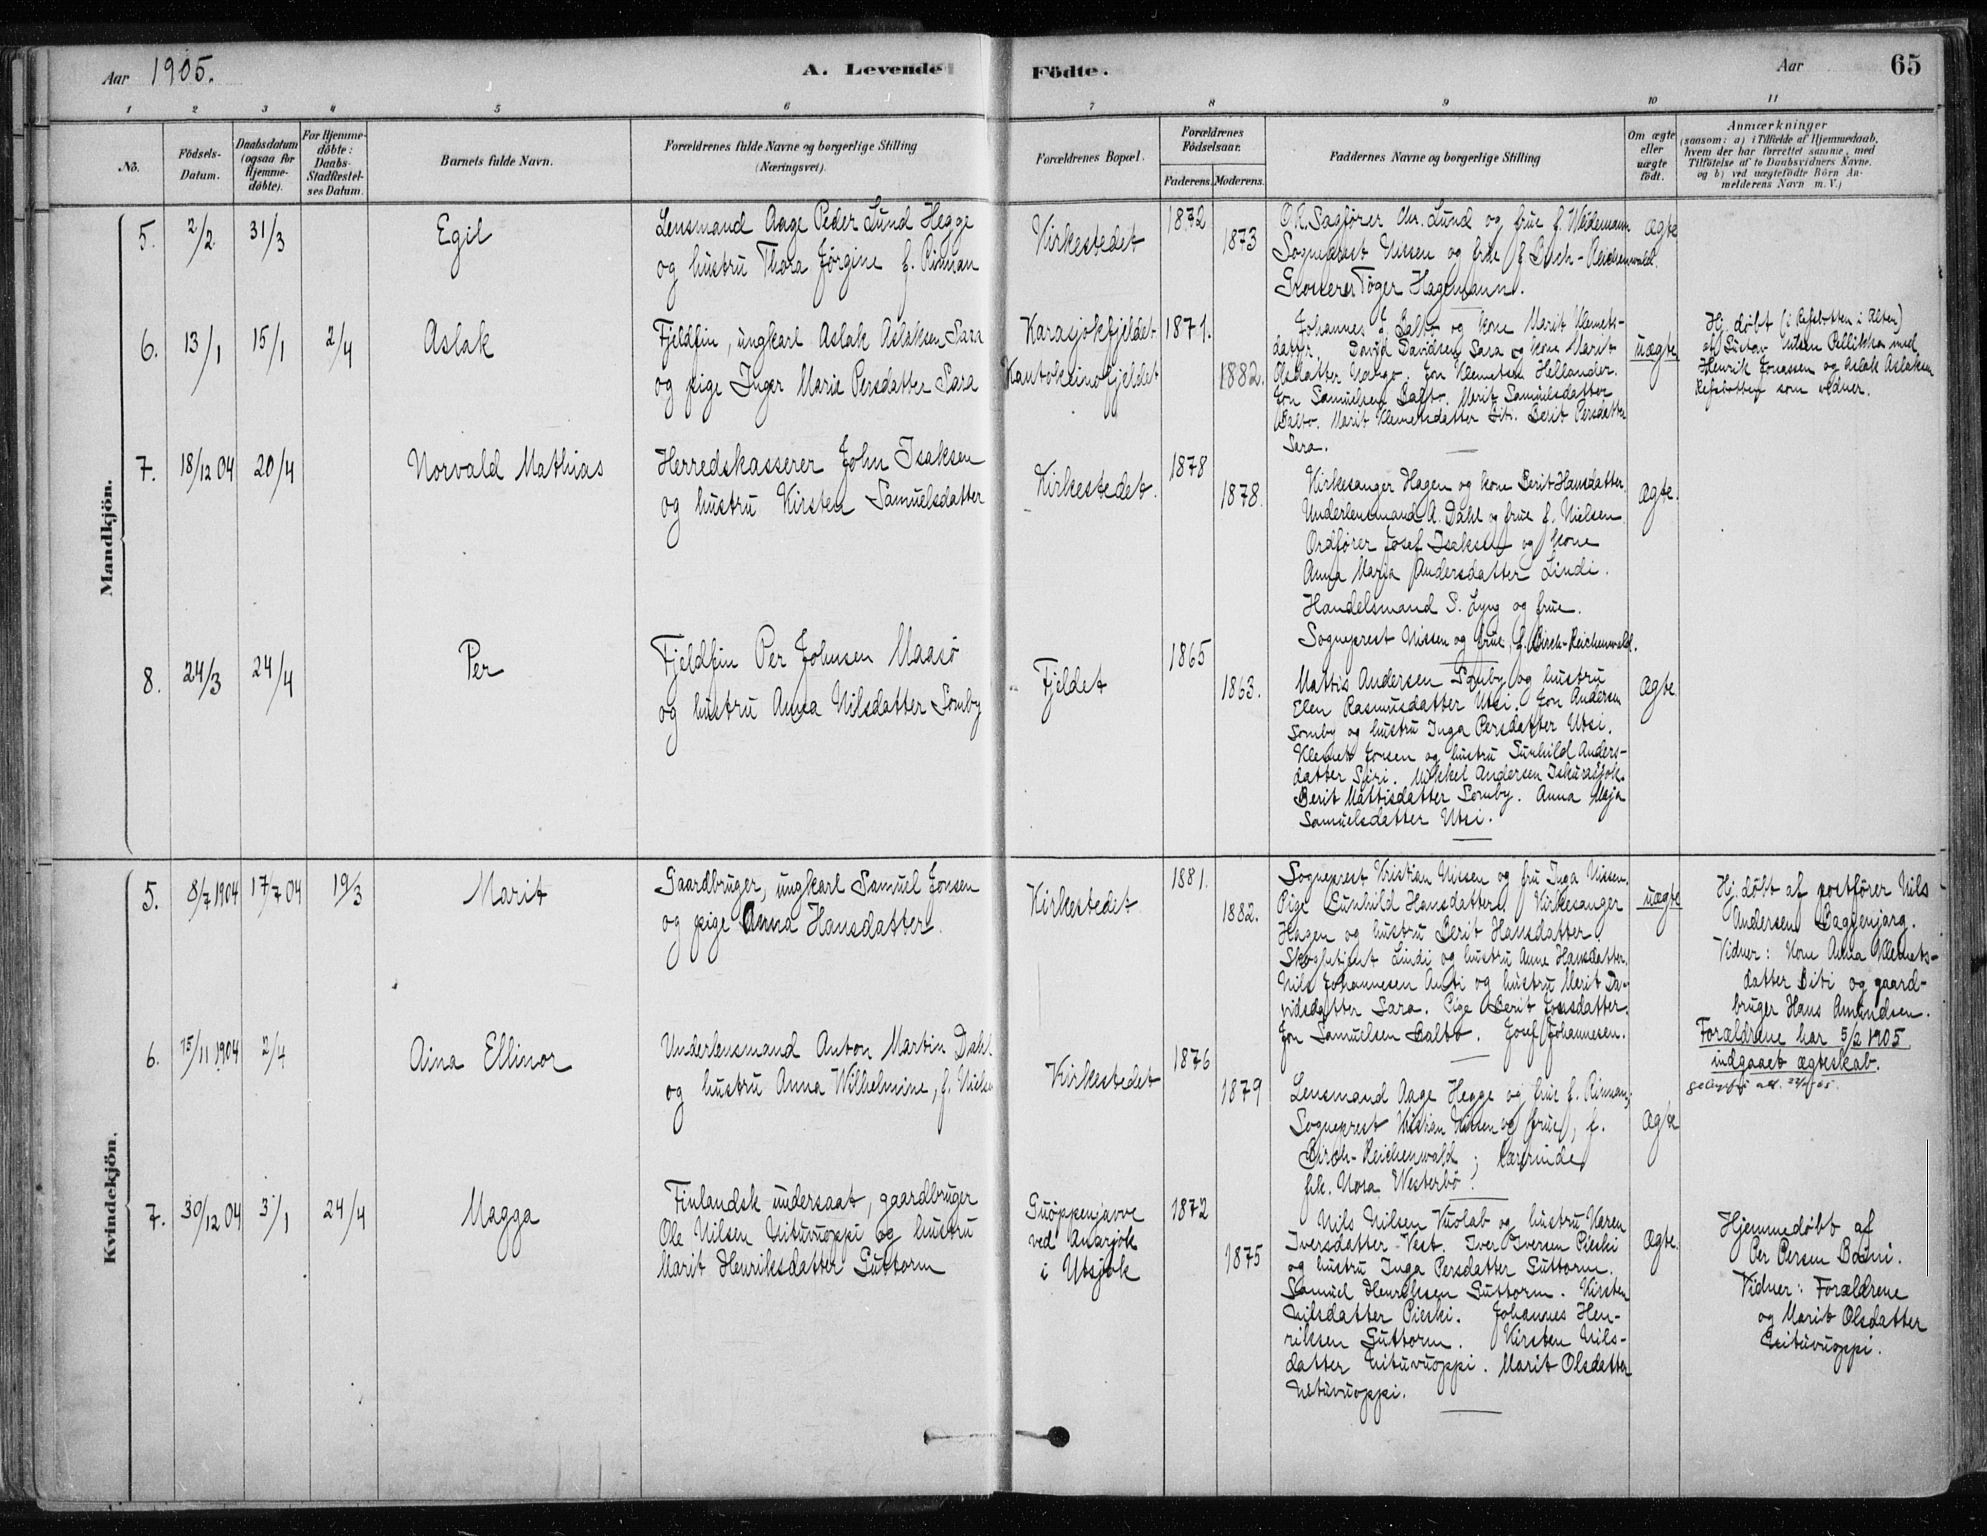 Aar 1905.
A. Levende Födte.
Aar
65
1 2 3 4 5 6 7 8 9 10 11
No.
Födsels-
Datum.
Daabsdatum
(ogsaa for
Hjemme-
döbte).
For Hjemme-
döbte:
Daabs-
Stadfæstel-
ses Datum.
Barnets fulde Navn.
Forældrenes fulde Navne og borgerlige Stilling
(Næringsvei).
Forældrenes Bopæl.
Forældrenes
Födselsaar.
Faderens. Moderens.
Faddernes Navne og borgerlige Stilling
Om ægte
eller
uægte
födt.
Anmærkninger
(saasom: a) i Tilfælde af Hjemmedaab,
hvem der har forrettet samme, med
Tilföielse af to Daabsvidners Navne,
og b) ved uægtefödte Börn An-
melderens Navn m. V.)
Mandkjön.
5. 2/2 31/3
Egil
Lensmand Aage Peder Lund Hegge
og hustru Thora Jørgine f. Rinnan
Kirkestedet
1872
1873
O.R. Sagfører Chr. Lund og frue f. Weidemann
Sogneprest Nissen og frue f. Birch-Reichenwald.
Grosserer Tøger Hagemann.
ægte
6. 13/1 15/1 2/4
Aslak
Fjeldfin, ungkarl Aslak Aslaksen Sara
og pige Inger Marie Persdatter Sara
Karasjokfjeldet
Kautokeinofjeldet
1871.
1882.
Johannes J. Balto og kone Marit Klemets-
datter. David Davidsen Sara og kone Marit
Olsdatter Vango. Jon Klemetsen Hellander.
Jon Samuelsen Balto. Marit Samuelsdatter
Balto. Marit Klemetsdatter Biti. Berit Persdatter
Sara.
uægte
Hj. døbt (i Refsbotten i Alten)
af Gustav Nilsen Pellikka med
Henrik Jonassen og Aslak Aslaksen
Refsbotten som vidner.
7. 18/12 04 20/4
Norvald Mathias
Herredskasserer John Isaksen
og hustru Kirsten Samuelsdatter
Kirkestedet.
1878
1878.
Kirkesanger Hagen og kone Berit Hansdatter
Underlensmand A. Dahl og frue f. Nielsen
Ordfører Josef Isaksen og kone
Anna Marja Andersdatter Lindi.
Handelsmand S. Lyng og frue.
Sogneprest Nissen og frue, f. Birch-Reichenwald.
ægte.
8. 24/3 24/4
Per
Fjeldfin Per Johnsen Maasø
og hustru Anna Nilsdatter Somby
Fjeldet
1865
1863.
Mattis Andersen Somby og hustru
Elen Rasmusdatter Utsi. Jon Andersen
Somby og hustru Inga Persdatter Utsi.
Klemet Jonsen og hustru Gunhild Anders-
datter Siri. Mikkel Andersen Iskurasjok.
Berit Mattisdatter Somby. Anna Maja
Samuelsdatter Utsi.
ægte.
Kvindekjön.
5. 8/7 1904 17/7 04 19/3
Marit
Gaardbruger, ungkarl Samuel Jonsen
og pige Anna Hansdatter.
Kirkestedet
1881.
1882.
Sogneprest Kristian Nissen og fru Inga Nissen.
Pige Gunhild Hansdatter. Kirkesanger
Hagen og hustru Berit Hansdatter.
Skogbetjent Lindi og hustru Anne Hansdatter.
Nils Johannesen Anti og hustru Marit Da-
vidsdatter Sara. Pige Berit Jonsdatter.
Jon Samuelsen Balto. Josef Johannesen.
uægte
Hj. døbt af postfører Nils
Andersen Baggenjarg.
Vidner: Kone Anna Klemets-
datter Biti og gaard-
bruger Hans Amundsen.
Forældrene har 5/2 1905
indgaaet ægteskab.
6. 15/11 1904 2/4
Aina Ellinor
Underlensmand Anton Martin Dahl
og hustru Anna Wilhelmine, f. Nielsen
Kirkestedet
1876
1879
Lensmand Aage Hegge og frue f. Rinnan;
Sogneprest Kristian Nissen og frue, f.
Birch-Reichenwald; Lærerinde
frk. Nora Westerbø.
ægte
7. 30/12 04 3/1 24/4
Magga
Finlandsk undersaat, gaardbruger
Ole Nilsen Nituvuoppi og hustru
Marit Henriksdatter Guttorm
Guoppenjavve
ved Anarjok
i Utsjok
1872
1875
Nils Nilsen Vuolab og hustru Karen
Iversdatter Vest. Iver Iversen Pieski
og hustru Inga Persdatter Guttorm.
Samuel Henriksen Guttorm. Kirsten
Nilsdatter Pieski. Johannes Hen-
riksen Guttorm. Kirsten Nils-
datter Nituvuoppi. Marit Olsdatter
Nituvuoppi.
ægte.
Hjemmedøbt af
Per Persen Baini.
Vidner: Forældrene
og Marit Olsdatter
Nituvuoppi.